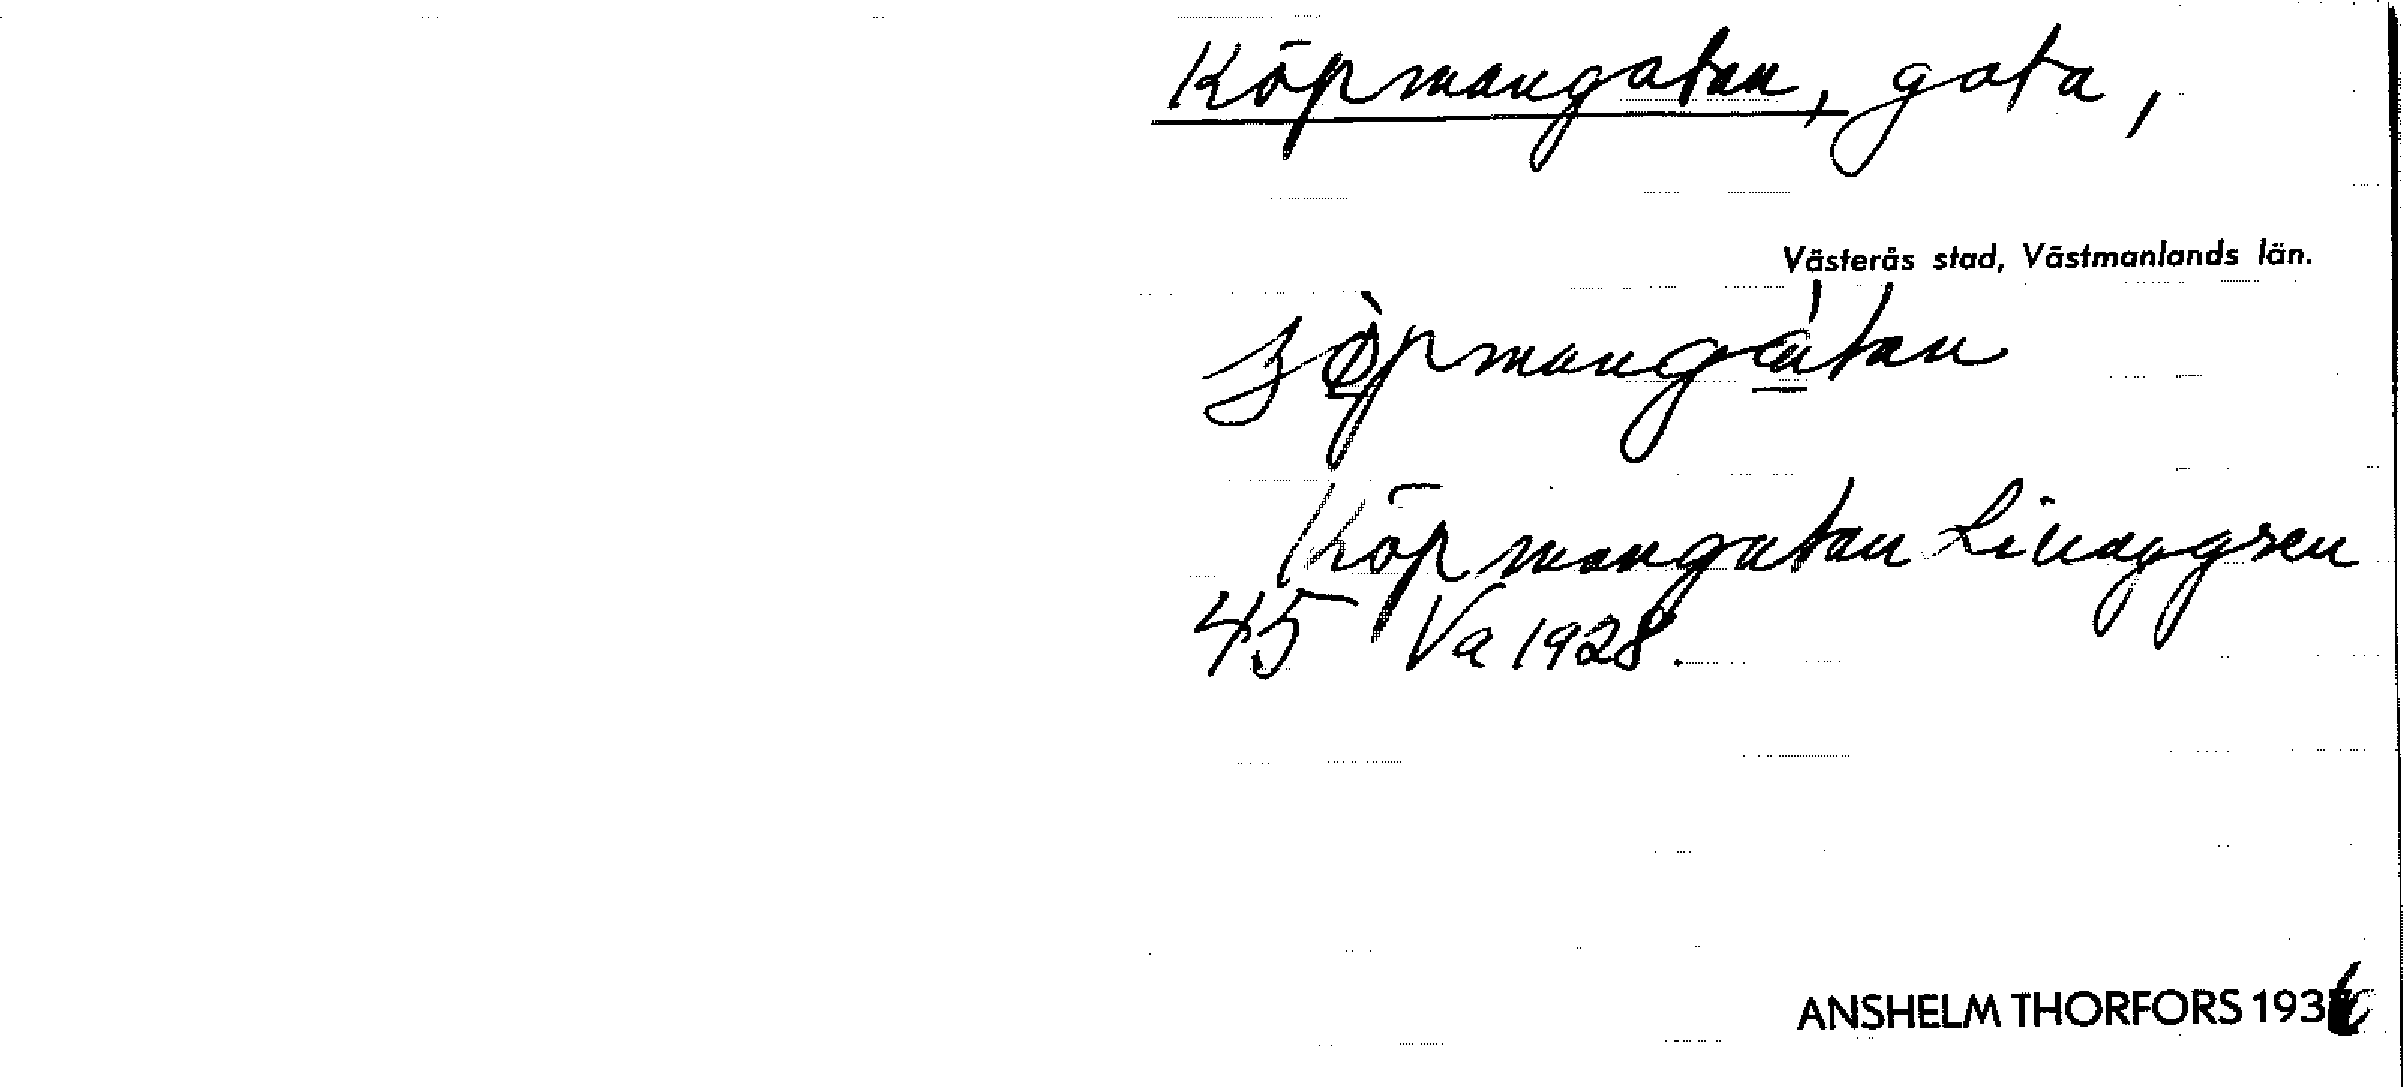 Köpmangatan, gata,
Västerås stad, Västmanlands län.
Köpmangatan
45 Va 1928.
ANSHELM THORFORS 1936